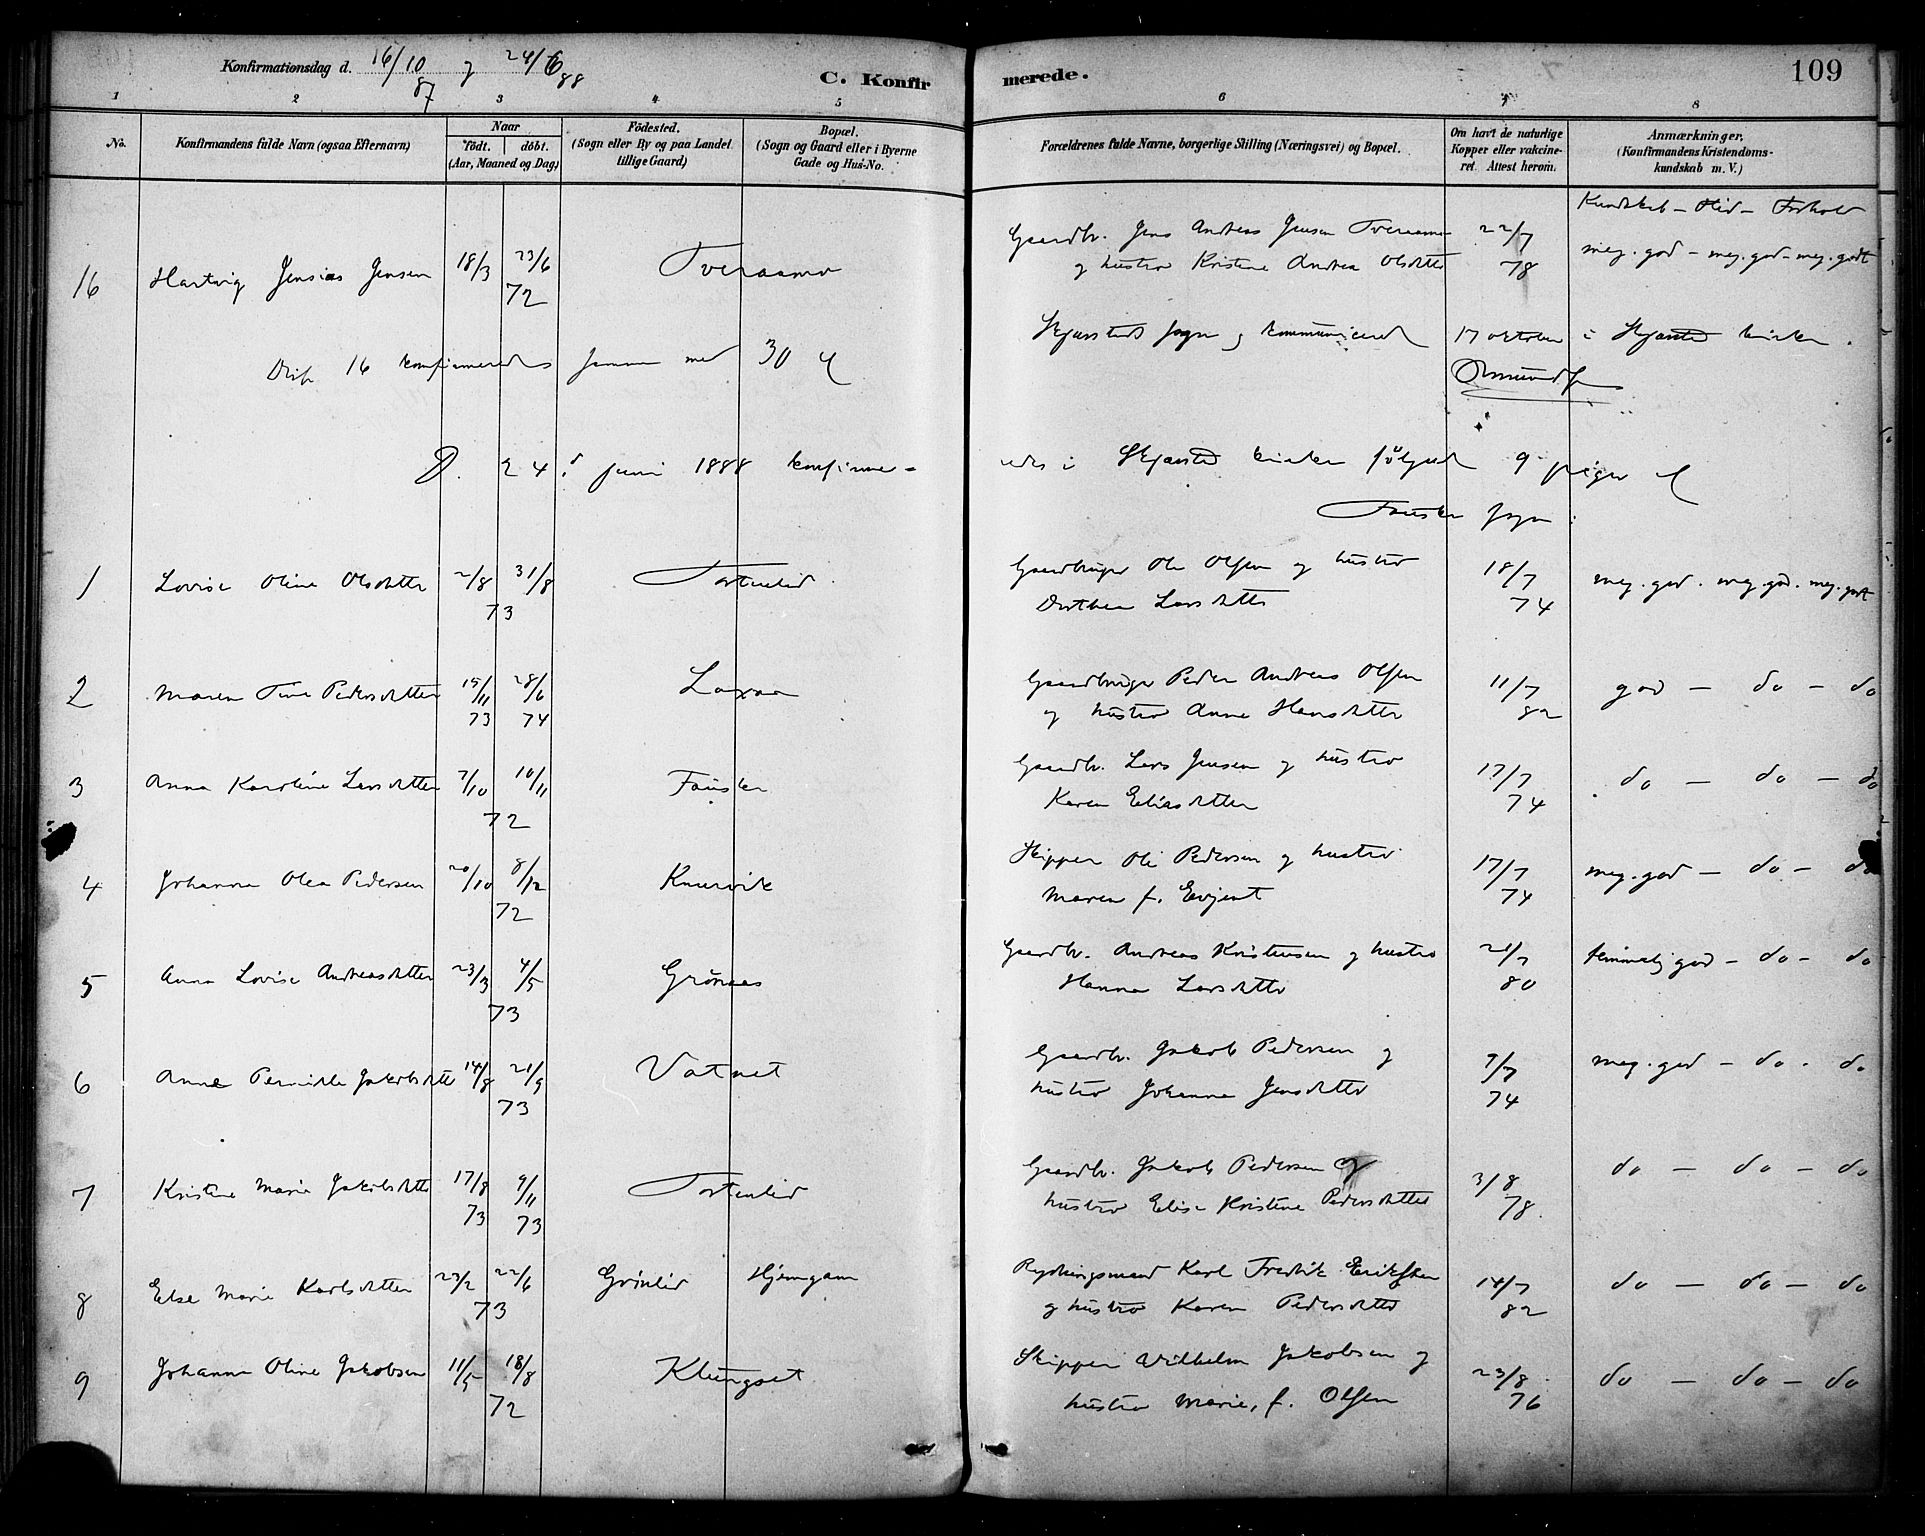 Konfirmationsdag d. 16/10 87 og 24/6 88
C. Konfir merede. 109
1 2 3 4 5 6 7 8
No.
Konfirmandens fulde Navn (ogsaa Efternavn)
Naar
födt. döbt.
(Aar, Maaned og Dag)
Födested.
(Sogn eller By og paa Landet
tillige Gaard)
Bopæl.
(Sogn og Gaard eller i Byerne
Gade og Hus-No.
Forældrenes fulde Navne, borgerlige Stilling (Næringsvei) og Bopæl.
Om havt de naturlige
Kopper eller vakcine-
ret. Attest herom.
Anmærkninger,
(Konfirmandens Kristendoms-
kundskab m. V.)
Kundskab - Flid - Forhold
16 Hartvig Jensius Jensen 18/3 23/6 72 Tveraamo
Gaardbr. Jens Andreas Jensen Tveraamo 22/7
og hustro Kristine Andrea Olsdatter 78 meg. god - meg. god - meg. godt
16 konfirmeredes sammen med 30 af
Skjærstad sogn og kommunicered 17 oktober i Skjærstad kirke.
D. 24d juni 1888 konfirmer=
edes i Skjærstad kirke følgende 9 piger af
Fauske sogn:
1 Lovise Oline Olsdatter 2/8 31/8 73 Tortenlid
Gaardbruger Ole Olsen og hustro 18/7
Dorthea Larsdatter 74 meg. god. meg. god. meg. godt
2 Maren Tine Pedersdatter 15/11 73 28/6 74 Laxaa
Gaardbruger Peder Andreas Olsen 11/7
og hustro Anne Hansdatter 82 god - do - do
3 Anna Karoline Larsdatter 7/10 10/11 72 Fauske
Gaardbr. Lars Jensen og hustro 17/7
Karen Eliasdatter 74 do - do - do
4 Johanna Olea Pedersen 20/10 8/12 72 Knurvik
Skipper Ole Pedersen og hustro 17/7
Maren f. Evjent 74 meg. god - do - do
5 Anna Lovise Andreasdatter 23/3 4/5 73 Grønaas
Gaardbr. Andreas Kristensen og hustro 21/7
Hanna Larsdatter 80 temmelig god - do - do
6 Anne Pernille Jakobsdatter 14/8 21/9 73 Vatnet
Gaardbr. Jakob Pedersen og 9/7
hustro Johanna Jensdatter 74 meg. god - do - do
7 Kristine Marie Jakobsdatter 17/8 73 9/11 73 Tortenlid
Gaardbr. Jakob Pedersen og 3/8
hustro Elise Kristine Pedersdatter 78 do - do - do
8 Else Marie Karlsdatter 23/2 22/6 73 Grønlid Hjemgam
Rydningsmand Karl Fredrik Eriksen 14/7
og hustro Karen Pedersdatter 82 do - do - do
9 Johanna Oline Jakobsen 11/5 18/8 72 Klungset
Skipper Vilhelm Jakobsen og 23/8
hustro Marie, f. Olsen 76 do - do - do